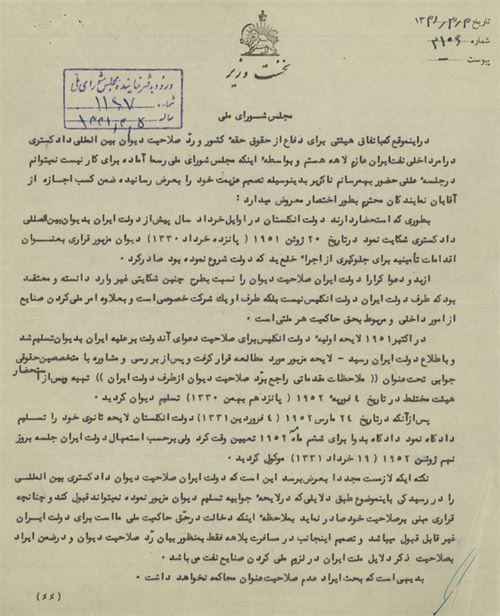 تاریخ ۱۳۳۱/۳/۳
شماره ۳۱۰۶
پیوست —
نخست وزیر
ورود بدفتر نماینده مجلس شورای ملی
شماره ۱۱۶۷
مجلس شورای ملی
در این موقع که باتفاق هیئتی برای دفاع از حقوق حقه کشور و ردّ صلاحیت دیوان بین المللی دادگستری
در امر داخلی نفت ایران عازم لاهه هستم و بواسطه اینکه مجلس شورای ملی رسما آماده برای کار نیست نمیتوانم
در جلسه علنی حضور بهمرسانم ناگزیر بدینوسیله تصمیم عزیمت خود را بعرض رسانیده ضمن کسب اجازه از
آقایان نمایندگان محترم بطور اختصار معروض میدارد :
بطوری که استحضار دارند دولت انگلستان در اوایل خرداد سال پیش از دولت ایران بدیوان بین‌المللی
دادگستری شکایت نمود در تاریخ ۲۰ ژوئن ۱۹۵۱ ( پانزده خرداد ۱۳۳۰ ) دیوان مزبور قراری بعنوان
اقدامات تأمینیه برای جلوگیری از اجراء خلع ید که دولت شروع نموده بود صادر کرد .
از بدو دعوا کرارا دولت ایران صلاحیت دیوان را نسبت بطرح چنین شکایتی غیر وارد دانسته و معتقد
بود که طرف دولت ایران دولت انگلیس نیست بلکه طرف او یک شرکت خصوصی است و بعلاوه امر ملی کردن صنایع
از امور داخلی و مربوط بحق حاکمیت هر ملتی است .
در اکتبر ۱۹۵۱ لایحه اولیه دولت انگلیس برای صلاحیت دعوای آن دولت بر علیه ایران بدیوان تسلیم شد
و باطلاع دولت ایران رسید – لایحه مزبور مورد مطالعه قرار گرفت و پس از بررسی و مشاوره با متخصصین حقوقی
جوابی تحت عنوان (( ملاحظات مقدماتی راجع بردّ صلاحیت دیوان از طرف دولت ایران )) تهیه و پس از استحضار
هیئت مختلط در تاریخ ۴ فوریه ۱۹۵۲ ( پانزدهم بهمن ۱۳۳۰ ) تسلیم دیوان گردید .
پس از آنکه در تاریخ ۲۴ مارس ۱۹۵۲ ( ۴ فروردین ۱۳۳۱ ) دولت انگلستان لایحه ثانوی خود را تسلیم
دادگاه نمود دادگاه بدوا برای ششم ماه ۱۹۵۲ تعیین وقت کرد ولی برحسب استمهال دولت ایران جلسه بروز
نهم ژوئن ۱۹۵۲ ( ۱۹ خرداد ۱۳۳۱ ) موکول گردید .
نکته ایکه لازمست مجددا بعرض برسد این است که دولت ایران صلاحیت دیوان دادگستری بین المللی
را در رسیدگی باین موضوع طبق دلایلی که در لایحه جوابیه تسلیم دیوان مزبور نموده نمیتواند قبول کند و چنانچه
قراری مبنی بر صلاحیت خود صادر نماید بملاحظه اینکه دخالت در حق حاکمیت ملی ما است برای دولت ایران
غیر قابل قبول میباشد و تصمیم اینجانب در مسافرت بلاهه فقط بمنظور بیان ردّ صلاحیت دیوان و در ضمن ایراد
بصلاحیت ذکر دلایل ملت ایران در لزوم ملی کردن صنایع نفت می باشد .
بدیهی است که بحث ایراد عدم صلاحیت عنوان محاکمه نخواهد داشت .
(××)